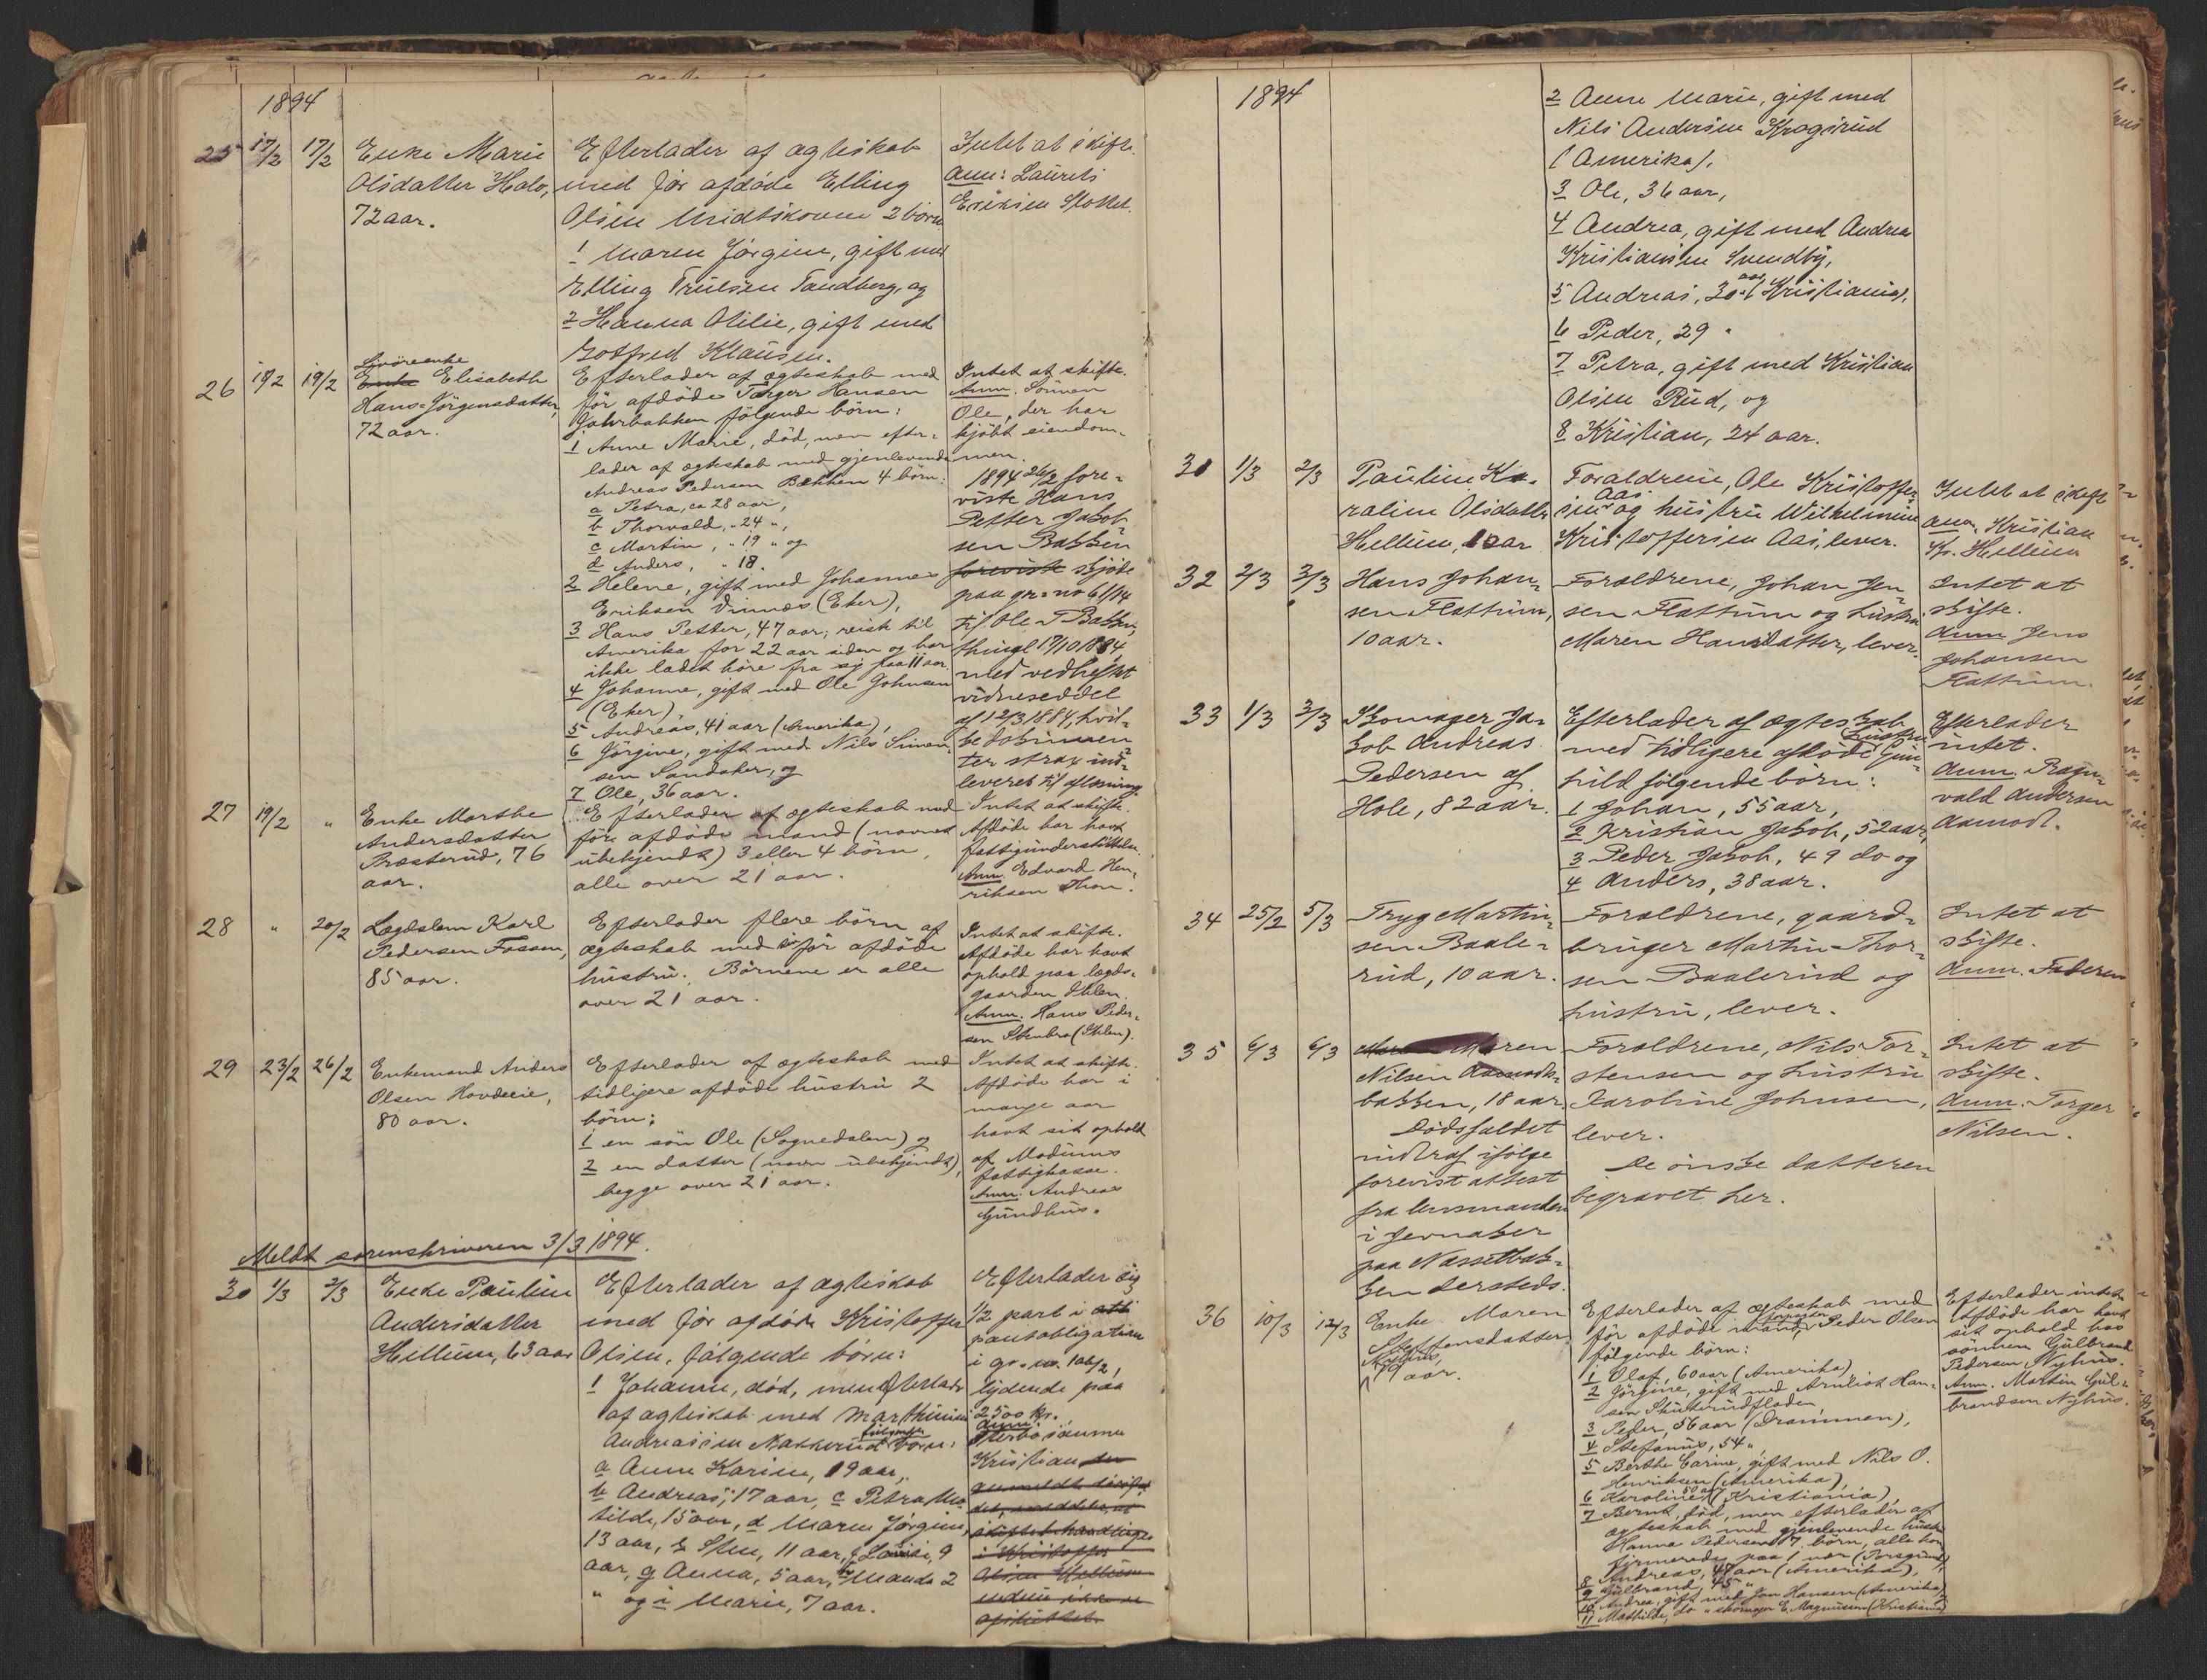 1894
25 17/2 17/2 Enke Marie
Olsdatter Holo,
72 aar.
Efterlader af ægteskab
med før afdøde Elling
Olsen Midtskoven 2 børn
1 Maren Jørgine, gift med
Elling Trulsen Tandberg, og
2 Hanna Otilie, gift med
Gotfred Klausen.
Intet at skifte.
Anm: Laurits
Eriksen
26 17/2 19/2 Livøreenke
Enke Elisabeth
Hans-Jörgensdatter,
72 aar.
Efterlader af ægteskab med
för afdöde Torger Hansen
följende börn:
1 Anne Marie, död, men efter-
lader af ægteskab med gjenlevende
Andreas Pedersen Bekken 4 börn:
a Petra, ca 28 aar,
b Thorvald, " 24 ",
c Martin, " 19 " og
d Anders, " 18.
2 Helene, gift med Johannes
Eriksen (Eker),
3 Hans Petter, 47 aar; reist til
Amerika for 22 aar siden og har
ikke ladet höre fra sig paa 11 aar.
4 Johanne, gift med Ole Johnsen
(Eker)
5 Andreas, 41 aar (Amerika),
6 Jörgine, gift med Nils Simen-
sen Sandaker, og
7 Ole, 36 aar.
Intet at skifte.
Anm. Sönnen
Ole, der har
kjöbt eiendom-
men.
1894 26/2 fore-
viste Hans
Petter Jakob-
sen Bakken
foreviste skjöde
paa gr-no 61/14
til Ole T Bakken,
thingl 17/10 1884,
med vedheftet
vidneseddel
af 12/3 1884, hvil-
ket dokument
ter strax ind-
leveret til aflæsning.
27 19/2 " Enke Marthe
Andersdatter
Præsterud, 76
aar.
Efterlader af ægteskab med
före afdöde mand (navnet
ubekjendt) 3 eller 4 börn,
alle over 21 aar.
Intet at skifte.
Afdöde har havt
fattigunderstöttelse.
Anm. Edvard Hen-
riksen Thon.
28 " 20/2 Lægdslem Karl
Pedersen Fossen,
85 aar.
Efterlader flere börn af
ægteskab med för afdöde
hustru. Börnene er alle
over 21 aar.
Intet at skifte.
Afdöde har havt
ophold paa lægds-
gaarden Ihlen.
Anm. Hans Peder-
sen Stenbro (Ihlen).
29 23/2 26/2 Enkemand Anders
Olsen Hovdeeie,
80 aar.
Efterlader af ægteskab med
tidligere afdöde hustru 2
börn:
1 en sön Ole (Sognedalen) og
2 en datter (navn ubekjendt),
begge over 21 aar.
Intet at skifte.
Afdöde har i
mange aar
havt sit ophold
af Modums
fattigkasse.
Anm. Andreas
Gundhus.
Meldt sorenskriveren 3/3 1894.
30 1/3 2/3 Enke Pauline
Andersdatter
Hellum, 63 aar
Efterlader af ægteskab
med før afdøde Kristoffer
Olsen, følgende børn:
1 Johanne, død, men efterlader
af ægteskab med Marthinius
Andreassen Nakkerud følgende børn:
a Anne Karine, 19 aar,
b Andreas, 17 aar, c Petra Ma-
tilde, 15 aar, d Maren Jørgine,
13 aar, e Sten, 11 aar, f Lovise, 9
aar, g Anna, 5 aar, h Manda 2
" og i Marie, 7 aar.
Efterlader sig
1/2 part i
pantobligation
i gr.-no. 106/2,
lydende paa
2500 kr.
Anm.
Sterbosønnen
Kristian
1894
2 Anne Marie, gift med
Nils Andersen Krogsrud
(Amerika),
3 Ole, 36 aar,
4 Andrea, gift med Andreas
Kristiansen Svendby,
5 Andreas, 30 aar (Kristiania),
6 Peder, 29 "
7 Petra, gift med Kristian
Olsen Rud, og
8 Kristian, 24 aar.
31 1/3 2/3 Pauline Ka-
raline Olsdatter
Hellum, aar
Forældrene, Ole Kristoffer-
sen Aas og hustru Wilhelmine
Kristoffersen Aas, lever.
Intet at skifte
Anm. Kristian
Kr. Hellum
32 2/3 3/3 Hans Johan-
sen Flattum,
10 aar.
Forældrene, Johan Jen-
sen Flattum og hustru
Maren Hansdatter, lever.
Intet at
skifte.
Anm Jens
Johansen
Flattum.
33 1/3 3/3 Skomager Ja-
kob Andreas
Pedersen af
Hole, 82 aar.
Efterlader af ægteskab
med tidligere afdöde hustru Gun-
hild følgende børn:
1 Johan, 55 aar,
2 Kristian Jakob, 52 aar,
3 Peder Jakob, 49 do og
4 Anders, 38 aar.
Efterlader
intet.
Anm. Ragn-
vald Andersen
Aamodt.
34 25/2 5/3 Tryg Martin-
sen Baale-
rud, 10 aar.
Forældrene, gaard-
bruger Martin Thor-
sen Baalerud og
hustru, lever.
Intet at
skifte.
Anm. Faderen
35 6/3 6/3 Maren
Nilsen Aamodt-
bakken, 18 aar.
Dödsfaldet
indtraf ifølge
forevist attest
fra lensmanden
i Jevnaker
paa Næssetbak-
ken dersteds.
Forældrene, Nils Tor-
stensen og hustru
Karoline Johnsen,
lever.
De ønske datteren
begravet her.
Intet at
skifte.
Anm. Torger
Nilsen.
36 10/3 12/3 Enke Maren
Steffensdatter
Nyhus,
79 aar.
Efterlader af ægteskab med
för afdöde mand, Peder Olsen
fölgende börn:
1 Olaf, 60 aar (Amerika)
2 Jörgine, gift med Arnliot Han-
sen Skuterudfladen
3 Peder, 56 aar (Drammen),
4 Stefanus, 54 ",
5 Berthe Carine, gift med Nils O.
Henriksen (Amerika),
6 Karoline 50 aar (Kristiania),
7 Bernt, död, men efterlader af
ægteskab med gjenlevende hustru
Hanna Pedersen 7 börn, alle kon
firmerede paa 1 nær (Porsgrund),
8 Andreas, 47 aar (Amerika),
9 Gulbrand, 45 "
10 Andrea, gift med Jon Hansen (Amerika)
11 Mathilde, do " skomager E. Magnussen (Kristiania)
Efterlader intet
Afdöde har havt
sit ophold hos
sönnen Gulbrand
Pedersen Nyhus.
Anm. Martin Gul-
brandsen Nyhus.